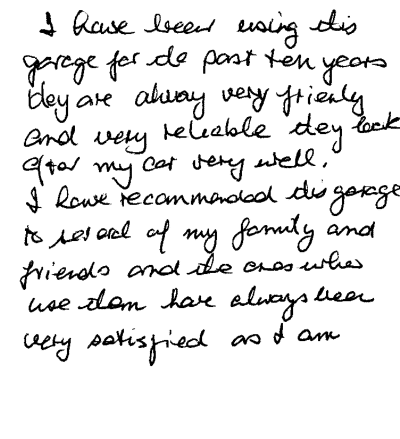 I have been using this
garage for the past ten years
they are alway very frienly
and very reliable they look
after my car very well.
I have recommended this garage
to several of my family and
friends and the ones who
use them have always been
very satisfied as I am